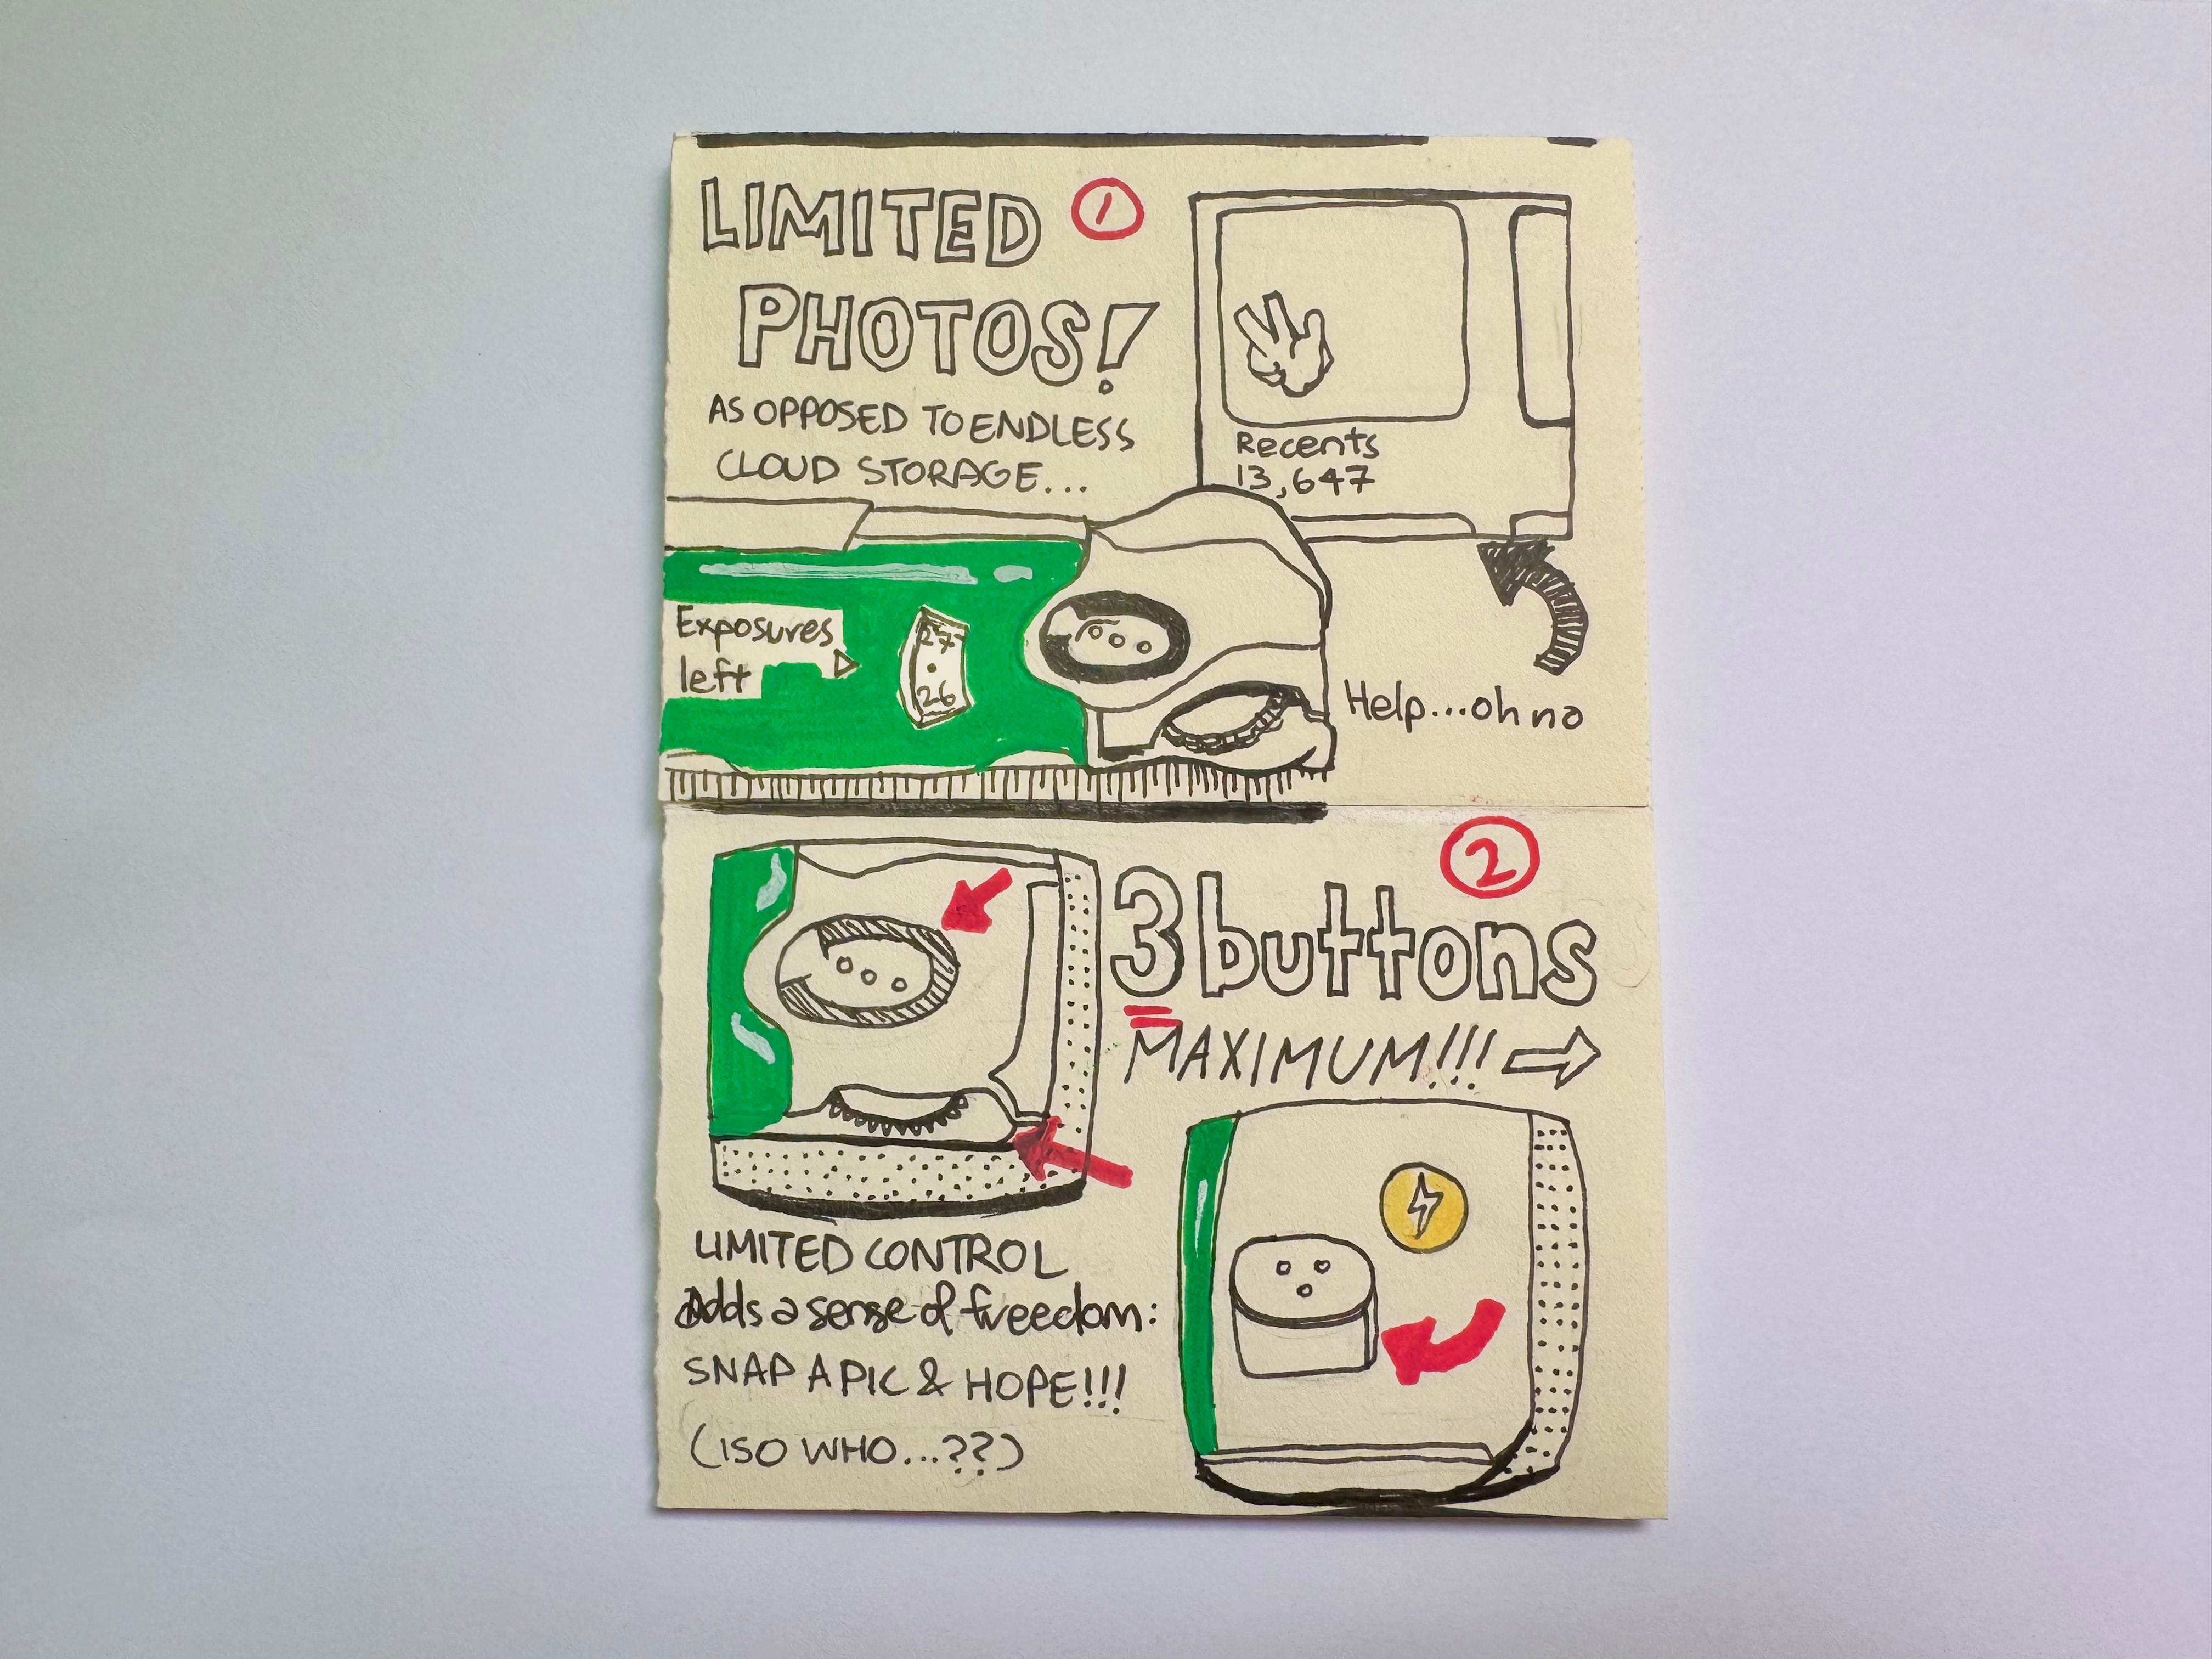 LIMITED 1
PHOTOS!
AS OPPOSED TO ENDLESS
CLOUD STORAGE...
Recents
13,647
Exposures
left
27
26
Help...oh no
2
3 buttons
MAXIMUM!!!
LIMITED CONTROL
Adds a sense of freedom:
SNAP A PIC & HOPE!!!
(ISO WHO...??)